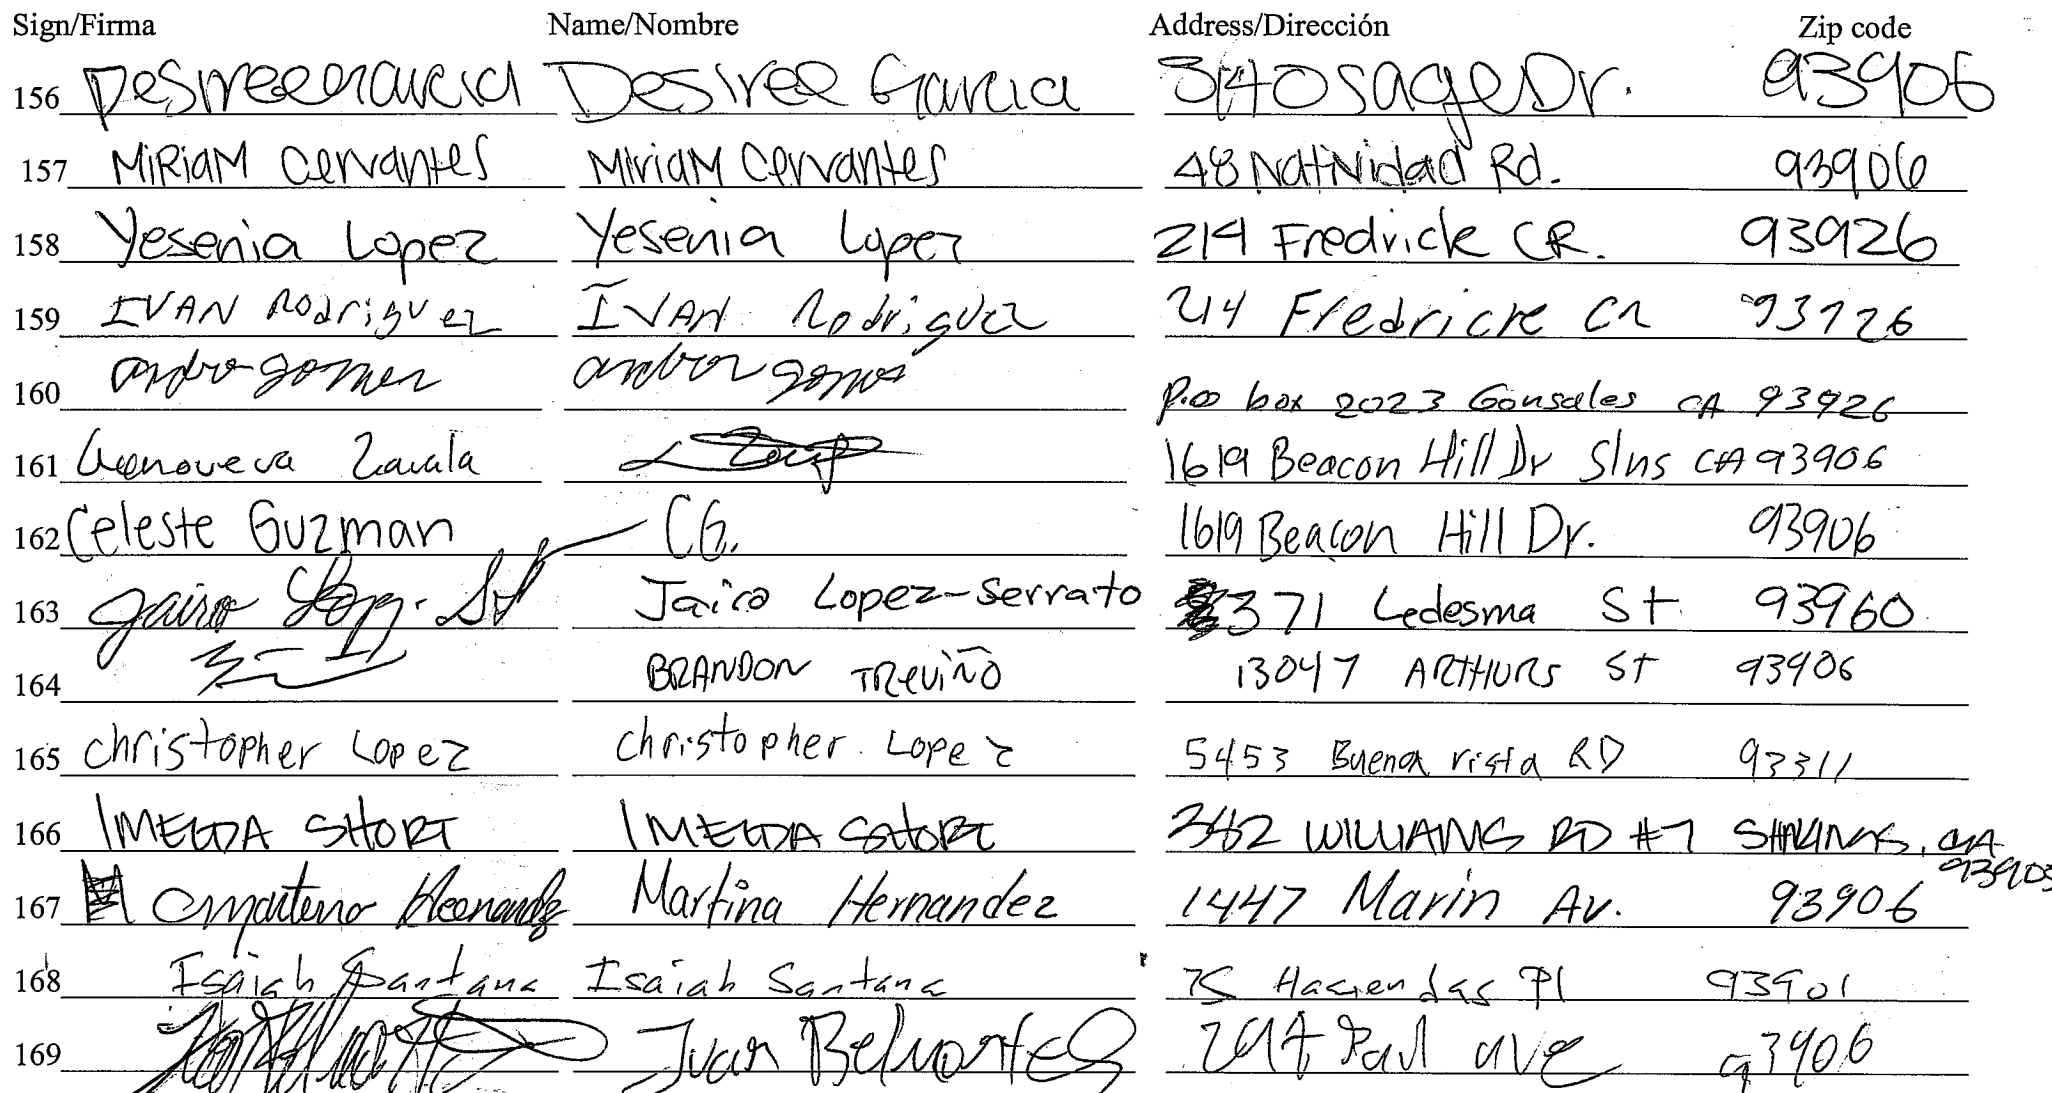 Sign/Firma Name/Nombre Address/Dirección Zip code
156 Desiree Garcia Desiree Garcia 3140 Sage Dr. 93906
157 MiRiaM Cervantes MiriaM Cervantes 48 Natividad Rd. 93906
158 Yesenia Lopez Yesenia Lopez 214 Fredrick CR. 93926
159 IVAN Rodriguez IVAN Rodriguez 214 Fredrick CR 93926
160 gomez P.O box 2023 Gonsales CA 93926
161 Genoveva Zavala 1619 Beacon Hill Dr Slns CA 93906
162 Celeste Guzman CG. 1619 Beacon Hill Dr. 93906
163 Jairo Lopez Jairo Lopez-Serrato 371 Ledesma St 93960
164 BRANDON TREVIÑO 13047 ARTHURS ST 93906
165 christopher Lopez christopher Lopez 5453 Buena vista RD 93311
166 IMELDA SHORT IMELDA SHORT 342 WILLIAMS RD #7 SALINAS, CA 93905
167 Martina Hernandez Martina Hernandez 1447 Marin Av. 93906
168 Isaiah Santana Isaiah Santana 75 Haciendas Pl 93901
169 Juan Paul ave 93906